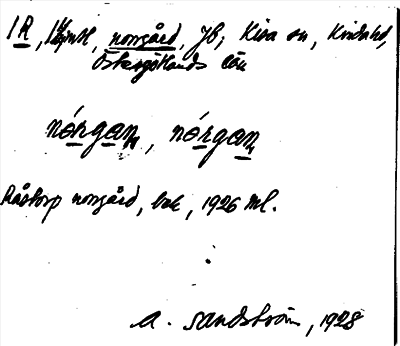 1 R, norrgård, Jb, Kisa sn, Kinda hd,
Östergötlands län
nórgan, nórgan
Råstorp norrgård, bok, 1926 ml.
A. Sandström, 1928